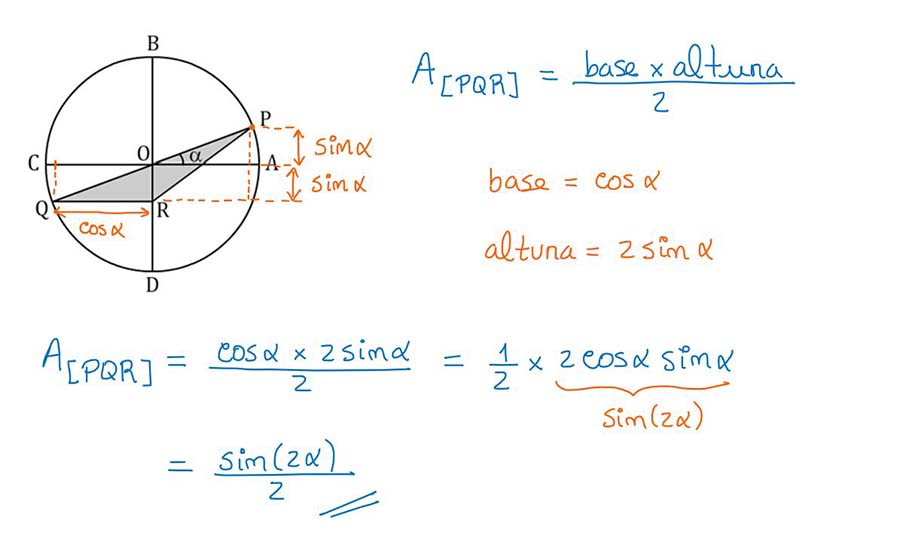 B
P
C
O
α
A
sinα
sinα
Q
R
cosα
D
A[PQR] = base × altura / 2
base = cosα
altura = 2 sinα
A[PQR] = cosα × 2 sinα / 2 = 1/2 × 2 cosα sinα
sin(2α)
= sin(2α) / 2